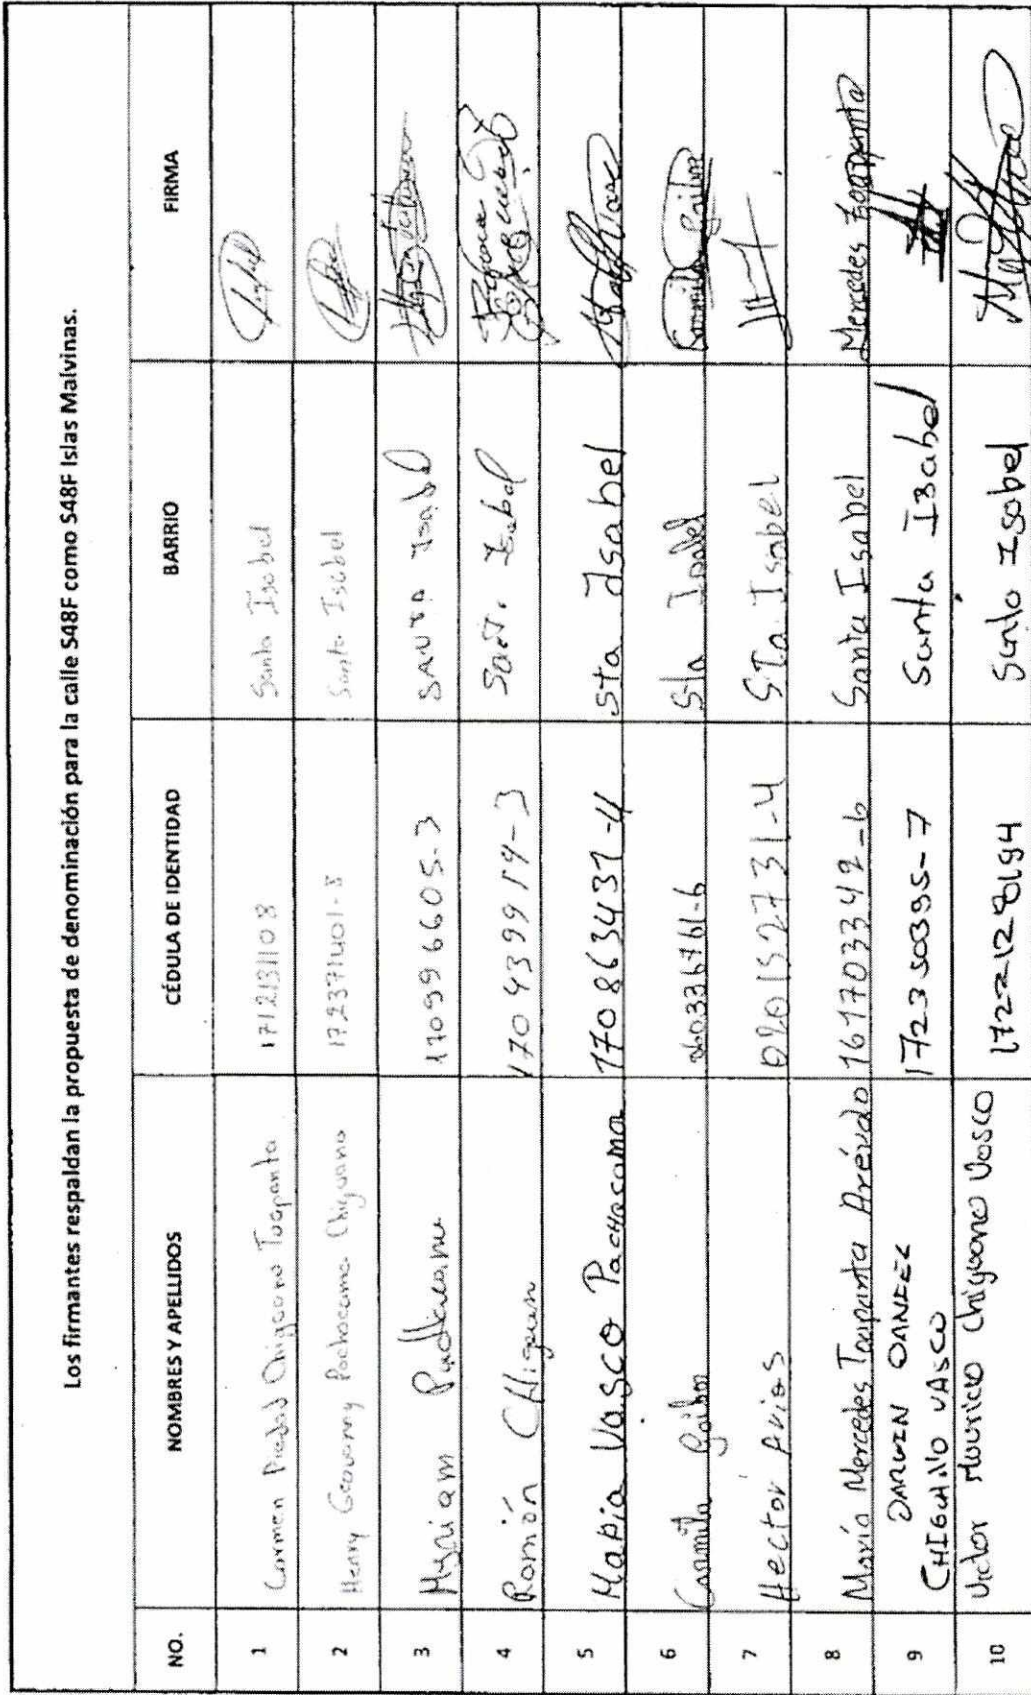 Los firmantes respaldan la propuesta de denominación para la calle S48F como S48F Islas Malvinas.
NO. NOMBRES Y APELLIDOS CÉDULA DE IDENTIDAD BARRIO FIRMA
1 Carmen Piedad Chiguano Toapanta 1712131108 Santa Isabel
2 Henry Geovanny Pachacama Chiguano 172371401-8 Santa Isabel
3 Myriam 170996605-3 SANTA Isabel
4 Ramón 170439919-3 Isabel
5 María Vasco Pachacama 170863437-4 Sta Isabel
6 Camila Gaibor Sta Isabel Camila Gaibor
7 Hector Arias 020152731-4 STa. Isabel
8 María Mercedes Toapanta Arévalo 161703342-6 Santa Isabel Mercedes Toapanta
9 DARWIN DANIEL
CHIGUANO VASCO 172350395-7 Santa Isabel
10 Victor Mauricio Chiguano Vasco 1722128194 Santa Isabel